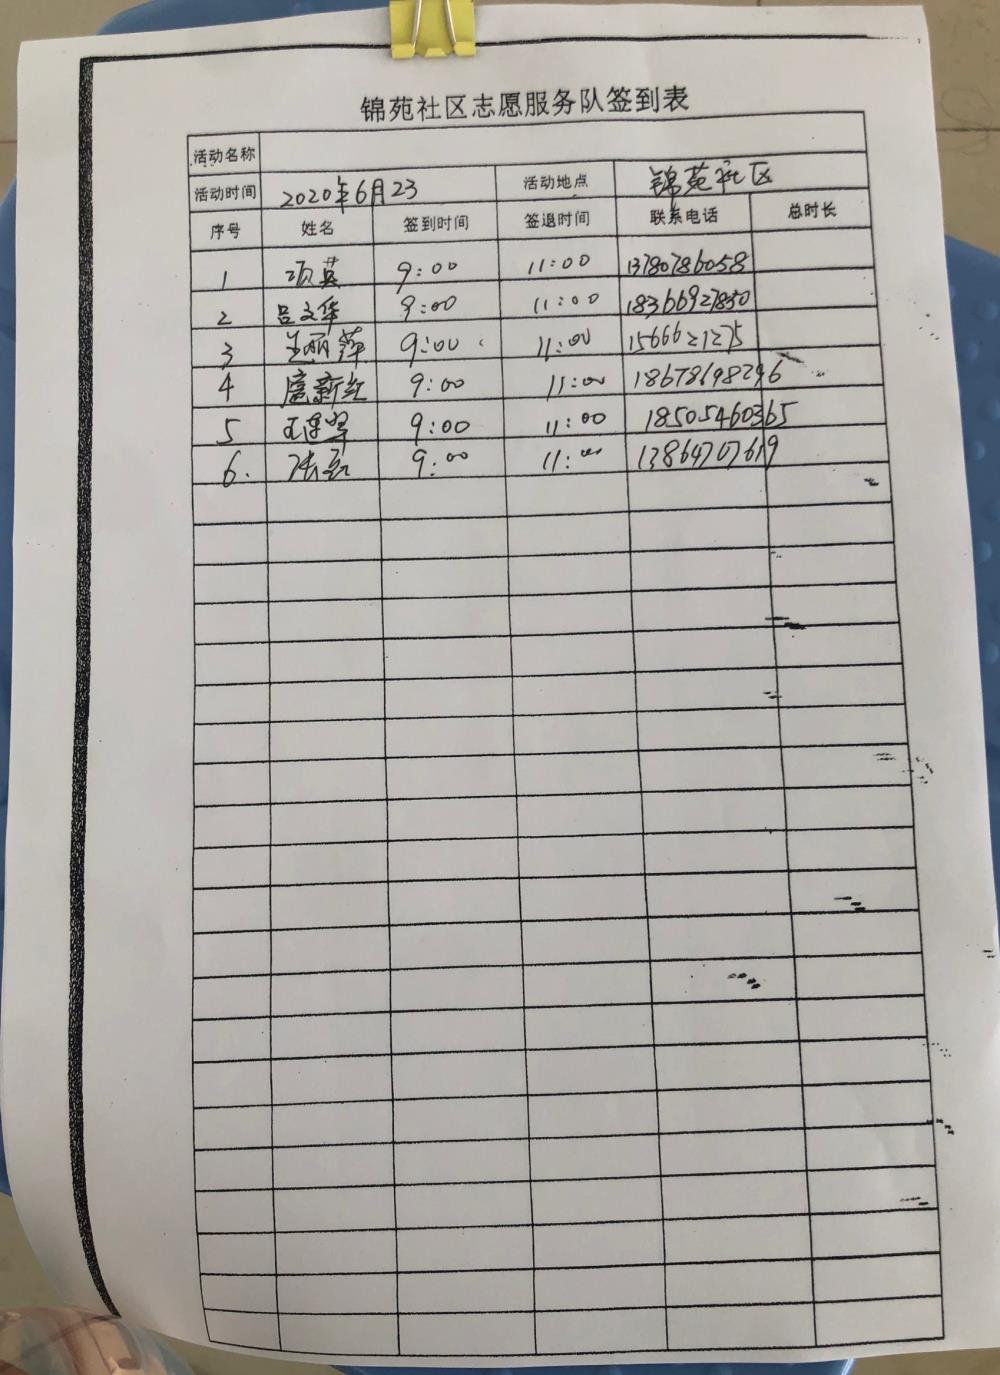 锦苑社区志愿服务队签到表
活动名称
活动时间 2020年6月23 活动地点 锦苑社区
序号 姓名 签到时间 签退时间 联系电话 总时长
1 项英 9:00 11:00 13780786058
2 吕文华 9:00 11:00 18366927850
3 兰丽萍 9:00 11:00 15666221275
4 扈新红 9:00 11:00 18678698296
5 9:00 11:00 18505460365
6. 9:00 11:00 13864707619